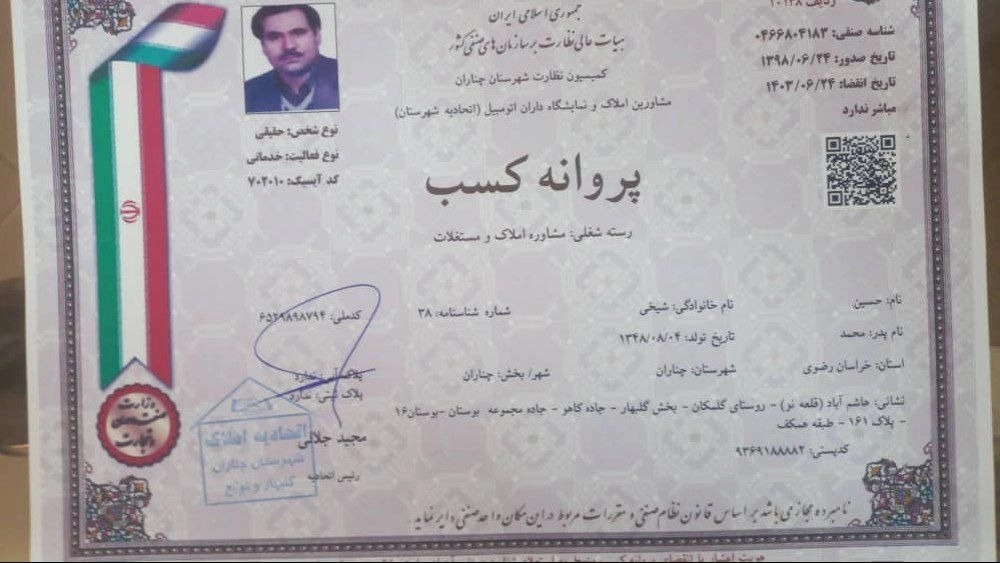 جمهوری اسلامی ایران
هیات عالی نظارت بر سازمان های صنفی کشور
کمیسیون نظارت شهرستان چناران
مشاورین املاک و نمایشگاه داران اتومبیل (اتحادیه شهرستان)
ردیف ۱۰۱۲۸
شناسه صنفی: ۰۴۶۶۸۰۴۱۸۳
تاریخ صدور: ۱۳۹۸/۰۶/۲۴
تاریخ انقضا: ۱۴۰۳/۰۶/۲۴
مباشر ندارد
نوع شخص: حقیقی
نوع فعالیت: خدماتی
کد آیسیک: ۷۰۲۰۱۰
پروانه کسب
رسته شغلی: مشاوره املاک و مستغلات
نام: حسین نام خانوادگی: شیخی شماره شناسنامه: ۳۸ کدملی: ۶۵۲۹۸۹۸۷۹۴
نام پدر: محمد تاریخ تولد: ۱۳۴۸/۰۸/۰۴
استان: خراسان رضوی شهرستان: چناران شهر/ بخش: چناران پلاک آبی ندارد
پلاک ثبتی: ندارد
نشانی: هاشم آباد (قلعه نو) - روستای گلمکان - بخش گلبهار - جاده کاهو - جاده مجموعه بوستان -بوستان۱۶
- پلاک ۱۶۱ - طبقه همکف
کدپستی: ۹۳۶۹۱۸۸۸۸۲
مجید جلالی
رئیس اتحادیه
وزارت
صنعت، معدن
و تجارت
اتحادیه املاک
شهرستان چناران
گلبهار و توابع
نامبرده مجاز می باشد بر اساس قانون نظام صنفی و مقررات مربوط در این مکان واحد صنفی دایر نماید.